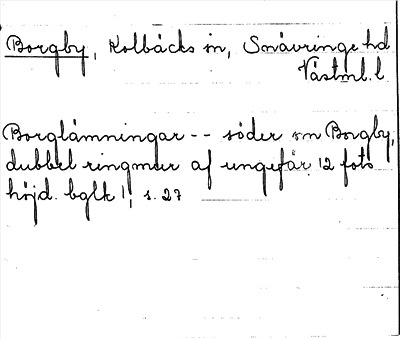 Borgby, Kolbäcks sn, Snävringe hd
Västml. l.
Borglämningar -- söder om Borgby,
dubbel ringmur af ungefär 12 fots
höjd. bglk 1, s. 27